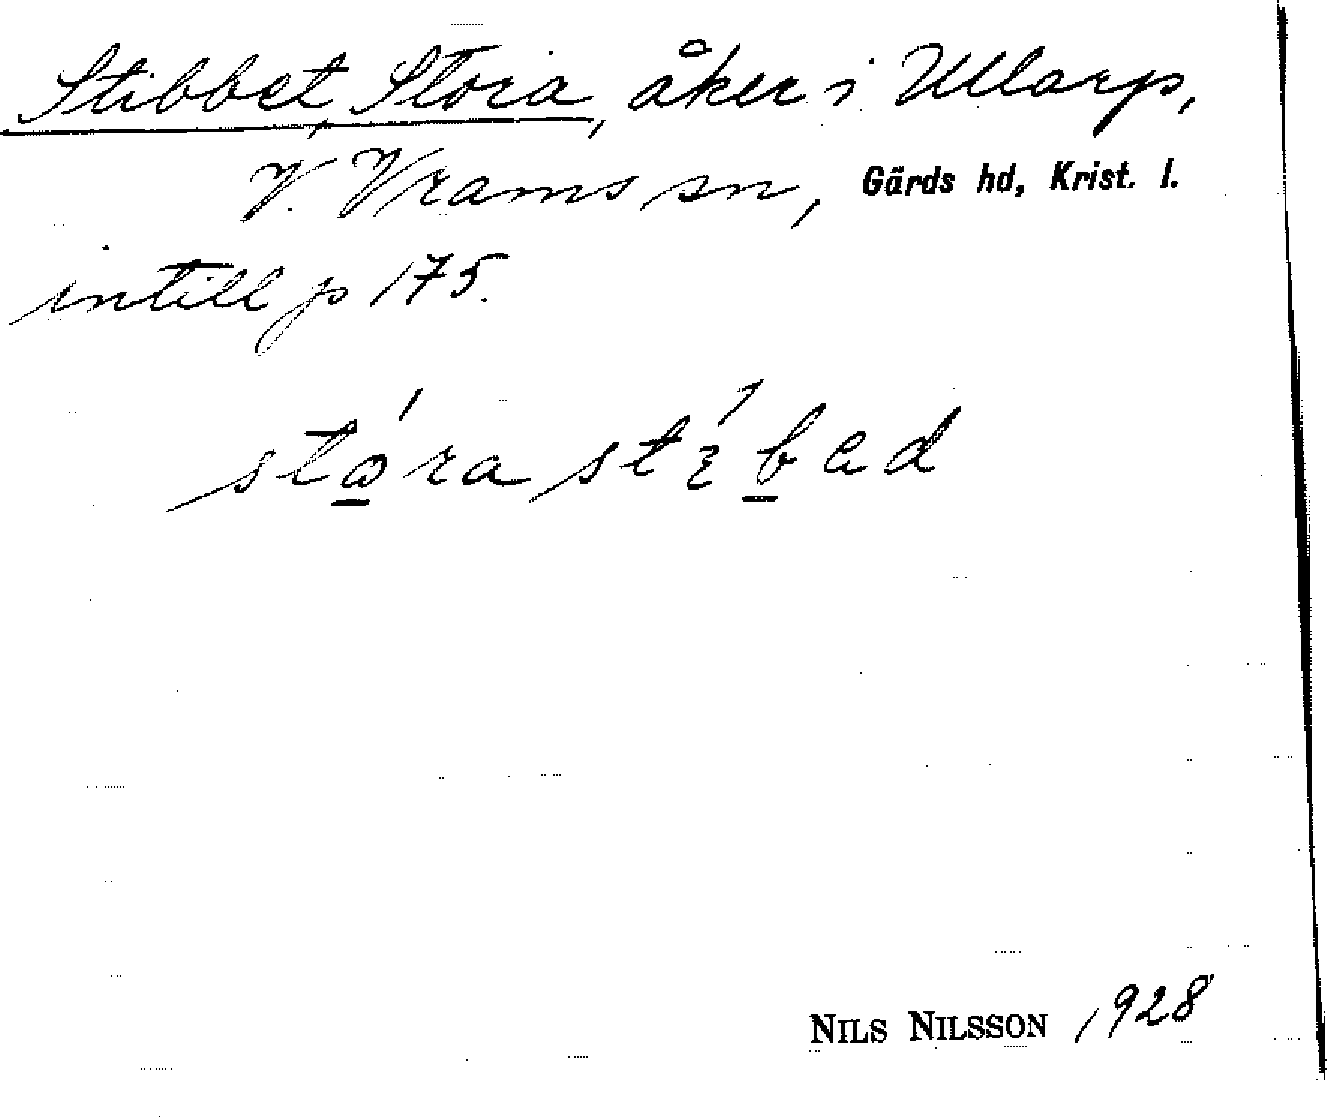 Stibbet, Stora, åker i Ullarp,
V. Vrams sn, Gärds hd, Krist. l.
intill p 175.
stɷ́ra stɩ́bad
NILS NILSSON 1928